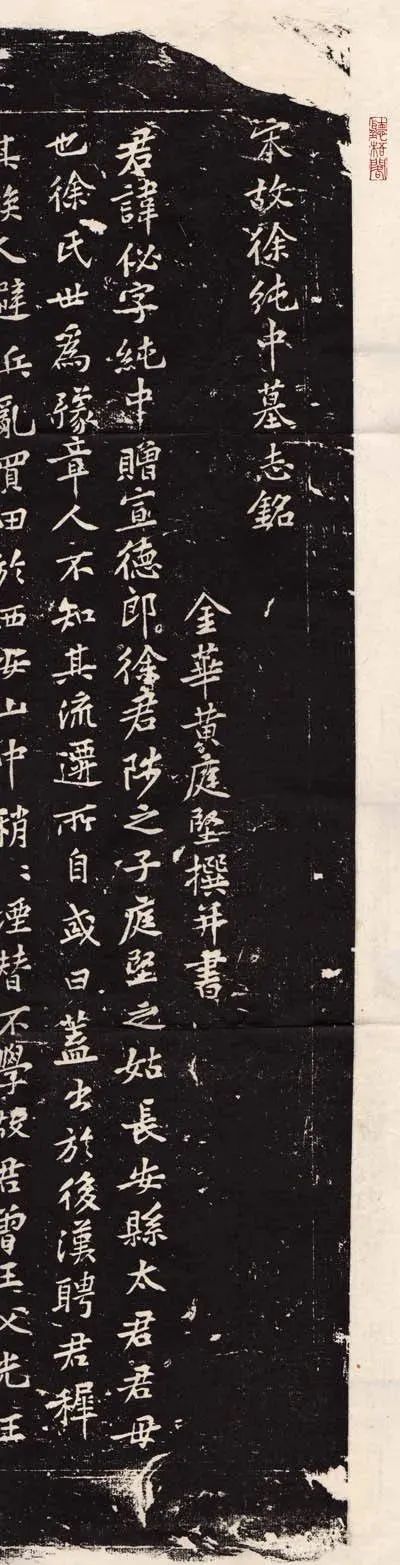 宋故徐純中墓志銘
金華黃庭堅撰并書
君諱佖字純中贈宣德郎徐君陟之子庭堅之姑長安縣太君君毋
也徐氏世爲豫章人不知其流遷所自或曰蓋出於後漢聘君穉
其後人避兵亂買田於西安山中稍〻湮替不學故君曾王父光王
聽梧閣